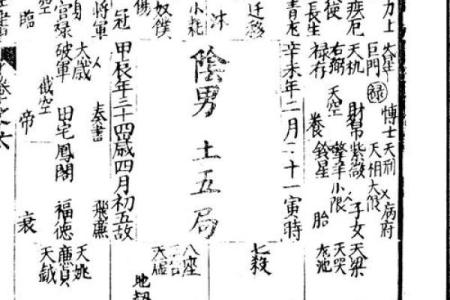 力士
巨門 祿
博士
天刑
天相 大限
病府
天机
財帛
紫微
子女
天梁
使
右弼
天空
擎羊
小限
天哭
長生
祿存
養
鈴星
胎
龙池
青龙
辛未年二月二十一寅時
迁移
七殺
陰男 土五局
沐
小耗
八座
奴僕
天虛
地劫
冠
甲辰年三十四歲四月初五故
將軍
奏書
飛廉
天姚
身
大歲
田宅
鳳閣
福德
廉貞
官禄
破軍
截空
天鉞
臨
帝
衰